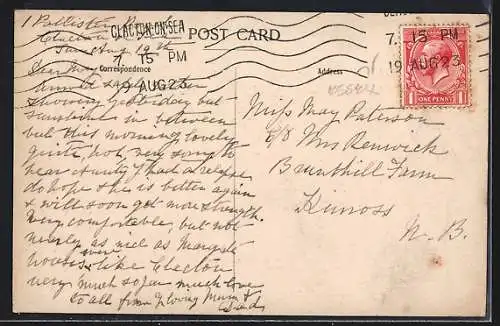 1 Pallister
CLACTON-ON-SEA
7. 15 PM
19 AUG 23
POST CARD
7. 15 PM
19 AUG 23
Clacton
Sun Aug 19th
Correspondence
Address
ONE PENNY
Dear May
showery yesterday but
sunshine in between
but this morning lovely
quite hot, very sorry to
hear Aunty J had a relapse
do hope she is better again
& will soon get more strength.
Very comfortable, but not
nearly as nice as Margate
houses, like Clacton
very much so far much love
to all from yr loving Mum &
Dad
Miss May Paterson
c/o Mrs Renwick
Brunthill Farm
Kinross
N. B.